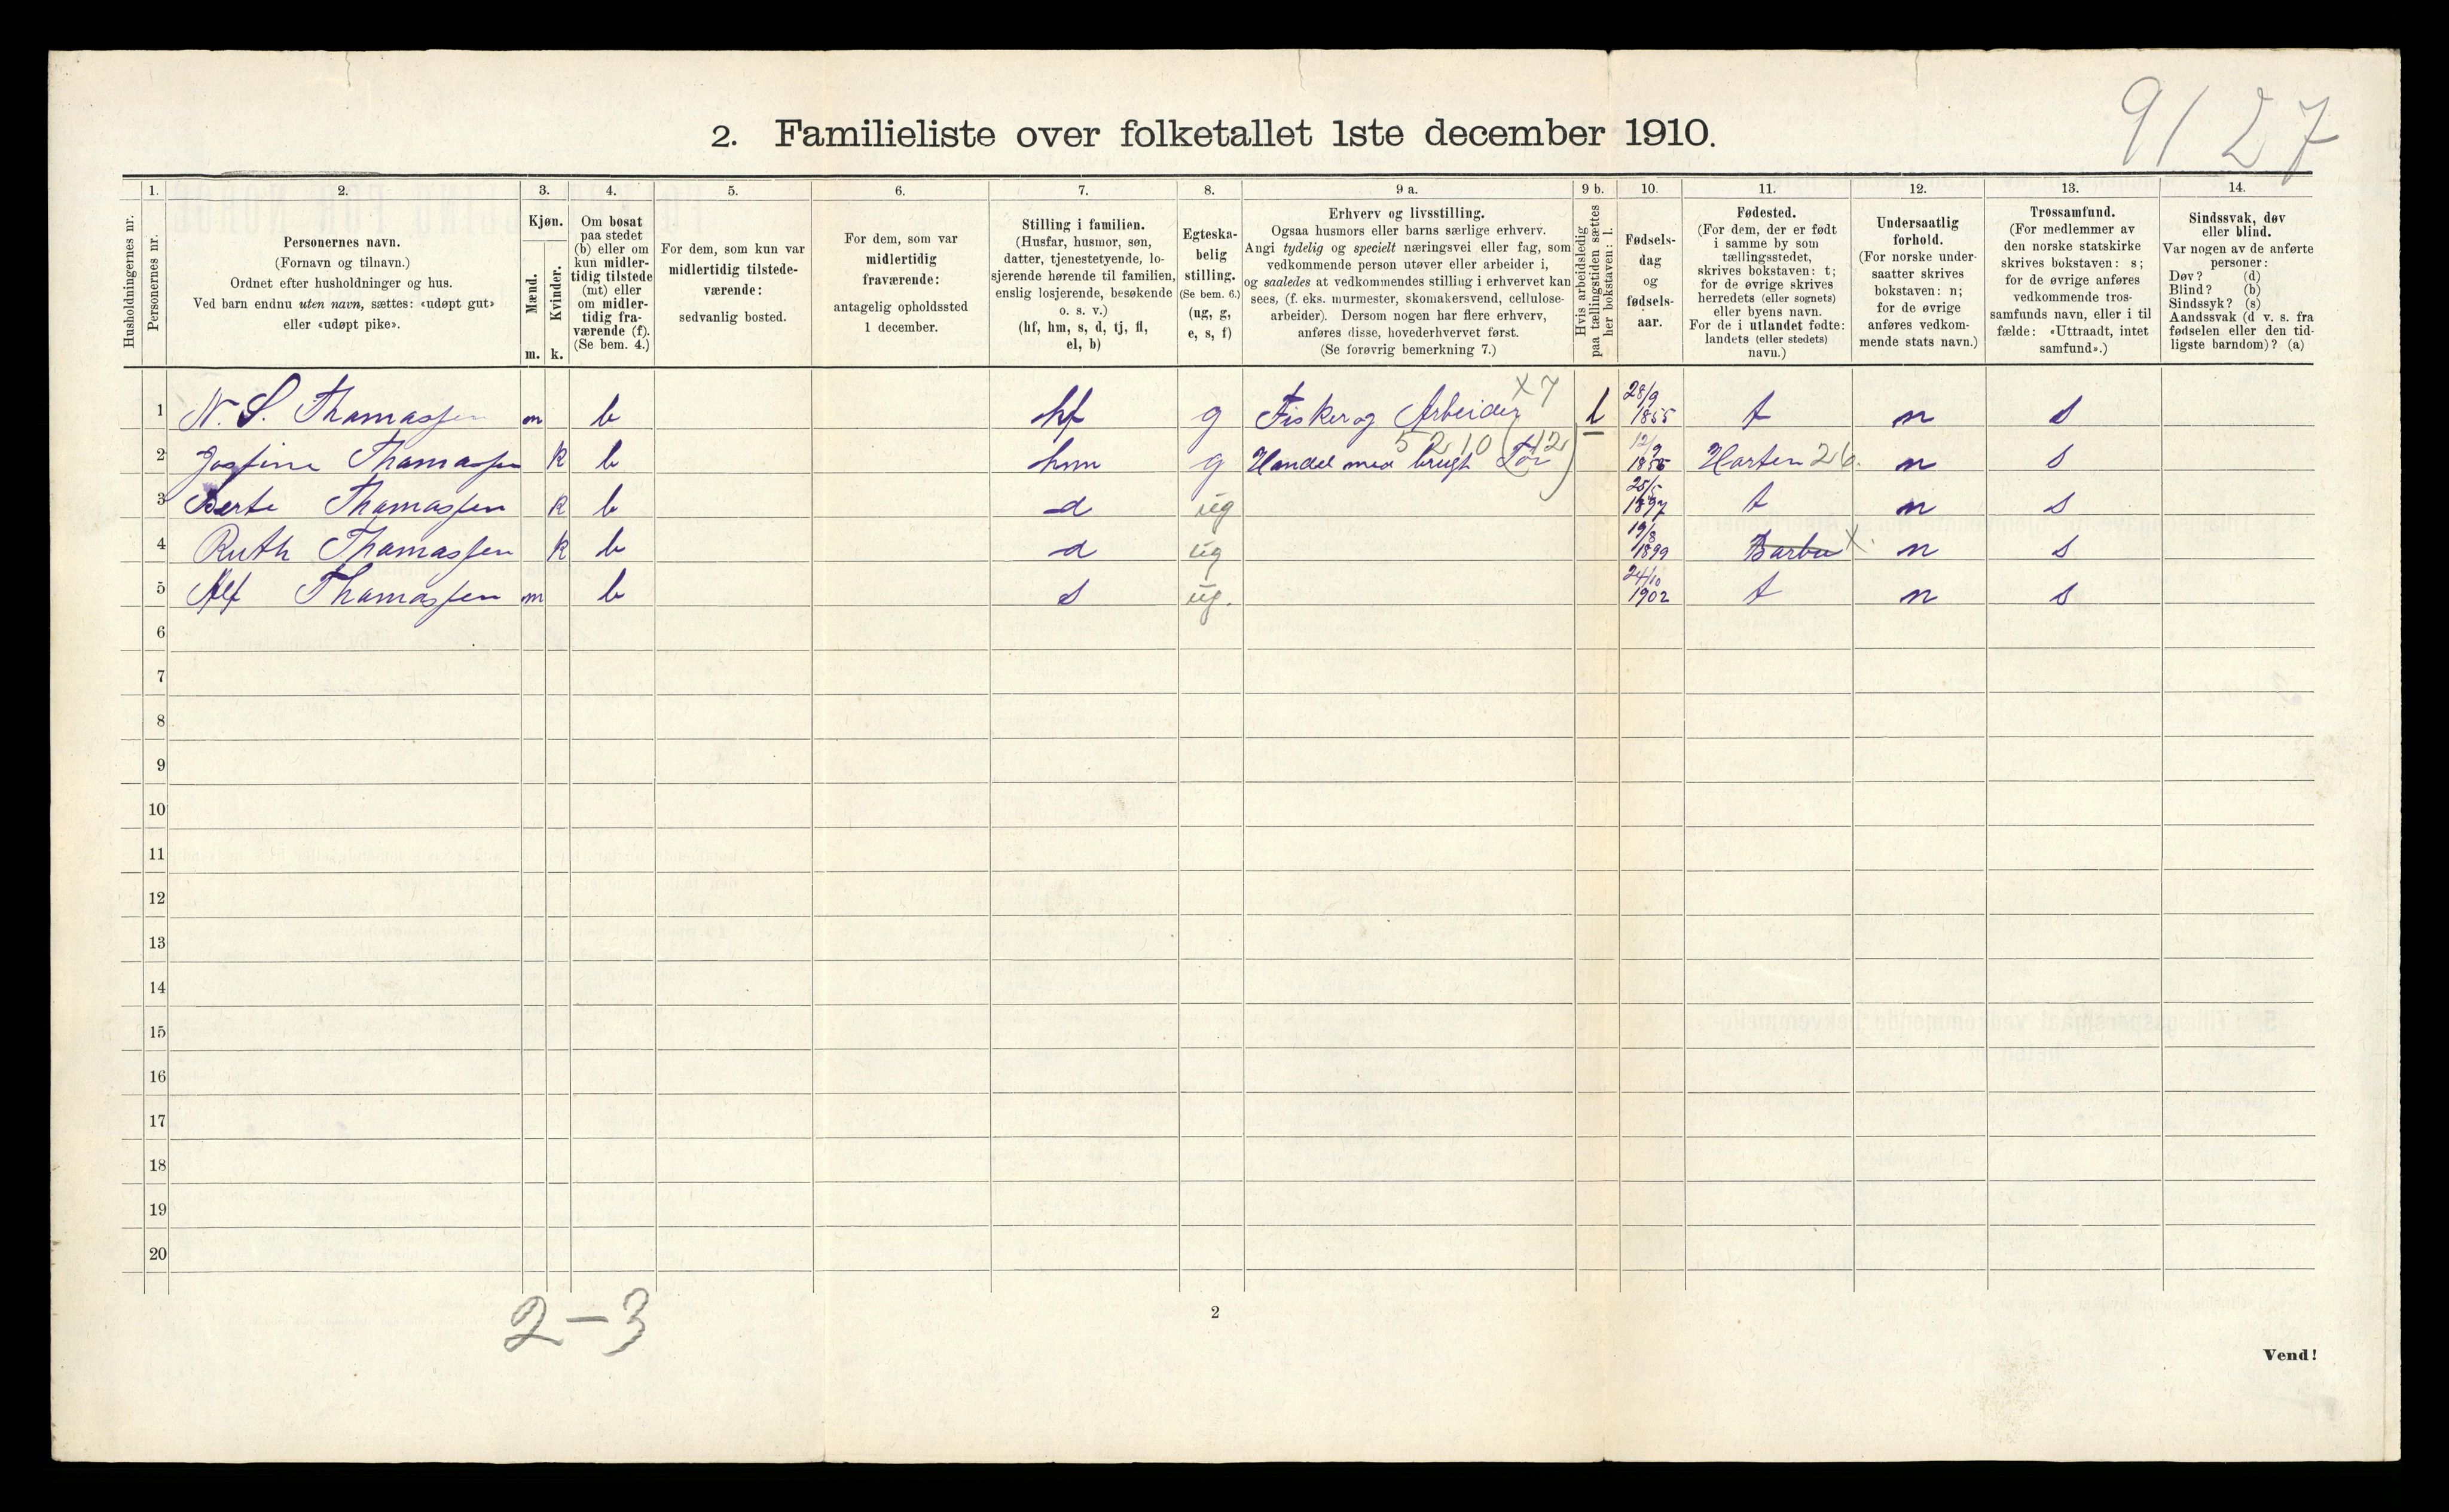 9/27
2. Familieliste over folketallet 1ste december 1910.
Husholdningernes nr.
1.
Personernes nr.
2.
Personernes navn.
(Fornavn og tilnavn.)
Ordnet efter husholdninger og hus.
Ved barn endnu uten navn, sættes: «udøpt gut»
eller «udøpt pike».
3.
Kjøn.
Mænd.
Kvinder.
m. k.
4.
Om bosat
paa stedet
(b) eller om
kun midler-
tidig tilstede
(mt) eller
om midler-
tidig fra-
værende (f).
(Se bem. 4.)
5.
For dem, som kun var
midlertidig tilstede-
værende:
sedvanlig bosted.
6.
For dem, som var
midlertidig
fraværende:
antagelig opholdssted
1 december.
7.
Stilling i familien.
(Husfar, husmor, søn,
datter, tjenestetyende, lo-
sjerende hørende til familien,
enslig losjerende, besøkende
o. s. v.)
(hf, hm, s, d, tj, fl,
el, b)
8.
Egteska-
belig
stilling.
(Se bem. 6.)
(ug, g,
e, s, f)
9 a.
Erhverv og livsstilling.
Ogsaa husmors eller barns særlige erhverv.
Angi tydelig og specielt næringsvei eller fag, som
vedkommende person utøver eller arbeider i,
og saaledes at vedkommendes stilling i erhvervet kan
sees, (f. eks. murmester, skomakersvend, cellulose-
arbeider). Dersom nogen har flere erhverv,
anføres disse, hovederhvervet først.
(Se forøvrig bemerkning 7.)
9 b.
Hvis arbeidsledig
paa tællingstiden sættes
her bokstaven: l.
10.
Fødsels-
dag
og
fødsels-
aar.
11.
Fødested.
(For dem, der er født
i samme by som
tællingsstedet,
skrives bokstaven: t;
for de øvrige skrives
herredets (eller sognets)
eller byens navn.
For de i utlandet fødte:
landets (eller stedets)
navn.)
12.
Undersaatlig
forhold.
(For norske under-
saatter skrives
bokstaven: n;
for de øvrige
anføres vedkom-
mende stats navn.)
13.
Trossamfund.
(For medlemmer av
den norske statskirke
skrives bokstaven: s;
for de øvrige anføres
vedkommende tros-
samfunds navn, eller i til
fælde: «Uttraadt, intet
samfund».)
14.
Sindssvak, døv
eller blind.
Var nogen av de anførte
personer:
Døv? (d)
Blind? (b)
Sindssyk? (s)
Aandssvak (d v. s. fra
fødselen eller den tid-
ligste barndom)? (a)
1 N. S. Thomassen m b hf g Fisker og Arbeider x7 l 28/9 1855 t n s
2 Josfine Thomassen k b hm g Handel med brugt 5210 12/9 Harten 26. n s
3 Berte Thomassen k b d ug 25/5 1897 t n s
4 Ruth Thomassen k b d ug 19/8 1899 Barbu x n s
5 Alf Thomassen m b s ug. 24/10 1902 t n s
6
7
8
9
10
11
12
13
14
15
16
17
18
19
20
2-3
2
Vend!